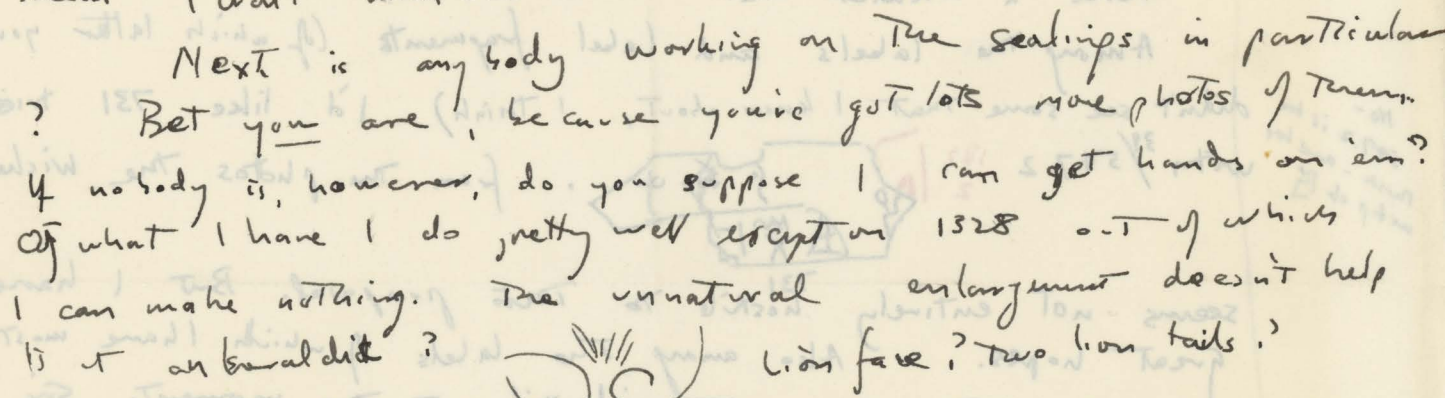 Next is anybody working on the sealings in particular
? Bet you are, because you've got lots more photos of them.
If nobody is, however, do you suppose I can get hands on 'em?
Of what I have I do pretty well except on 1328 out of which
I can make nothing. The unnatural enlargement doesn't help
Is it an heraldic ? Lion face? two lion tails?